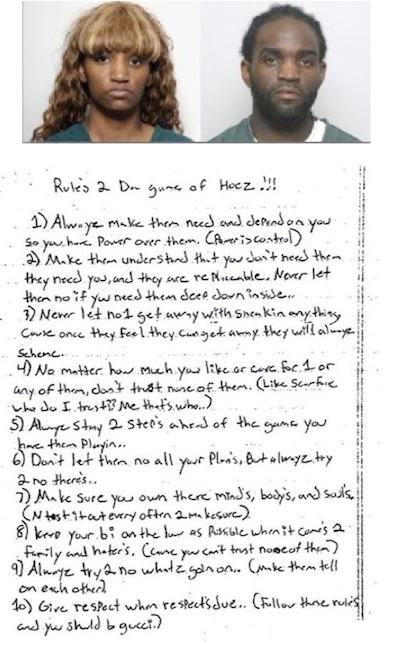 Rule's 2 Da game of Hoez !!!
1) Alwayz make them need and depend on you
so you have Power over them. (Power is control)
2) Make them understand that you don't need them
they need you, and they are replaceable. Never let
them no if you need them deep down inside..
3) Never let no1 get away with sneakin anything
Cause once they feel they can get away they will alwayz
Scheme..
4) No matter how much you like or care for 1 or
any of them, don't trust none of them. (Like Scarface
who do I trust?? Me that's who..)
5) Alwayz Stay 2 Step's ahead of the game you
have them Playin..
6) Don't let them no all your Plan's, But alwayz try
2 no there's..
7) Make sure you own there mind's, body's, and soul's
(N test it out every often 2 make sure)
8) keep your bi on the low as Possible when it come's 2
family and hater's. (cause you can't trust none of them)
9) Alwayz try 2 no what'z goin on.. (make them tell
on each other)
10) Give respect when respect's due.. (Follow these rules
and you should b gucci.)